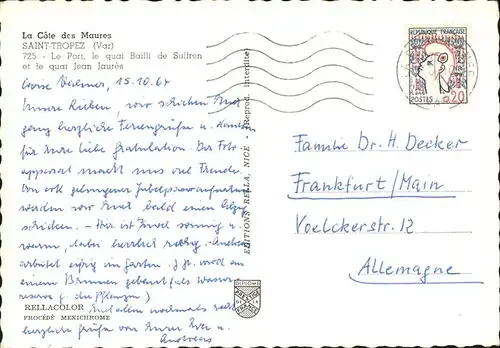 La Côte des Maures
SAINT-TROPEZ (Var)
725 - Le Port, le quai Bailli de Suffren
et le quai Jean Jaurès
15.10.64
Unsere Lieben, wir schicken Euch
ganz herzliche Feriengrüße u. danken
für Eure liebe Gratulation. Der Foto-
apparat macht uns viel Freude.
werden wir Euch bald einen
schicken. - Hier ist Ferien sonnig u.
warm, dabei herrlich ruhig. Andreas
arbeitet eifrig im Garten.
einem Brunnen
reserve f. die Pflanzen)
Und allen nochmals recht
herzliche Grüße von Eurer u.
Andreas
RELLACOLOR
PROCÉDÉ MEXICHROME
EDITIONS RELLA, NICE
(Reprod. interdite)
DIPLOME
PRESTIGE
FRANCE
REPUBLIQUE FRANÇAISE
POSTES
0,20
Familie Dr. H. Decker
Frankfurt/Main
Voelckerstr. 12
Allemagne